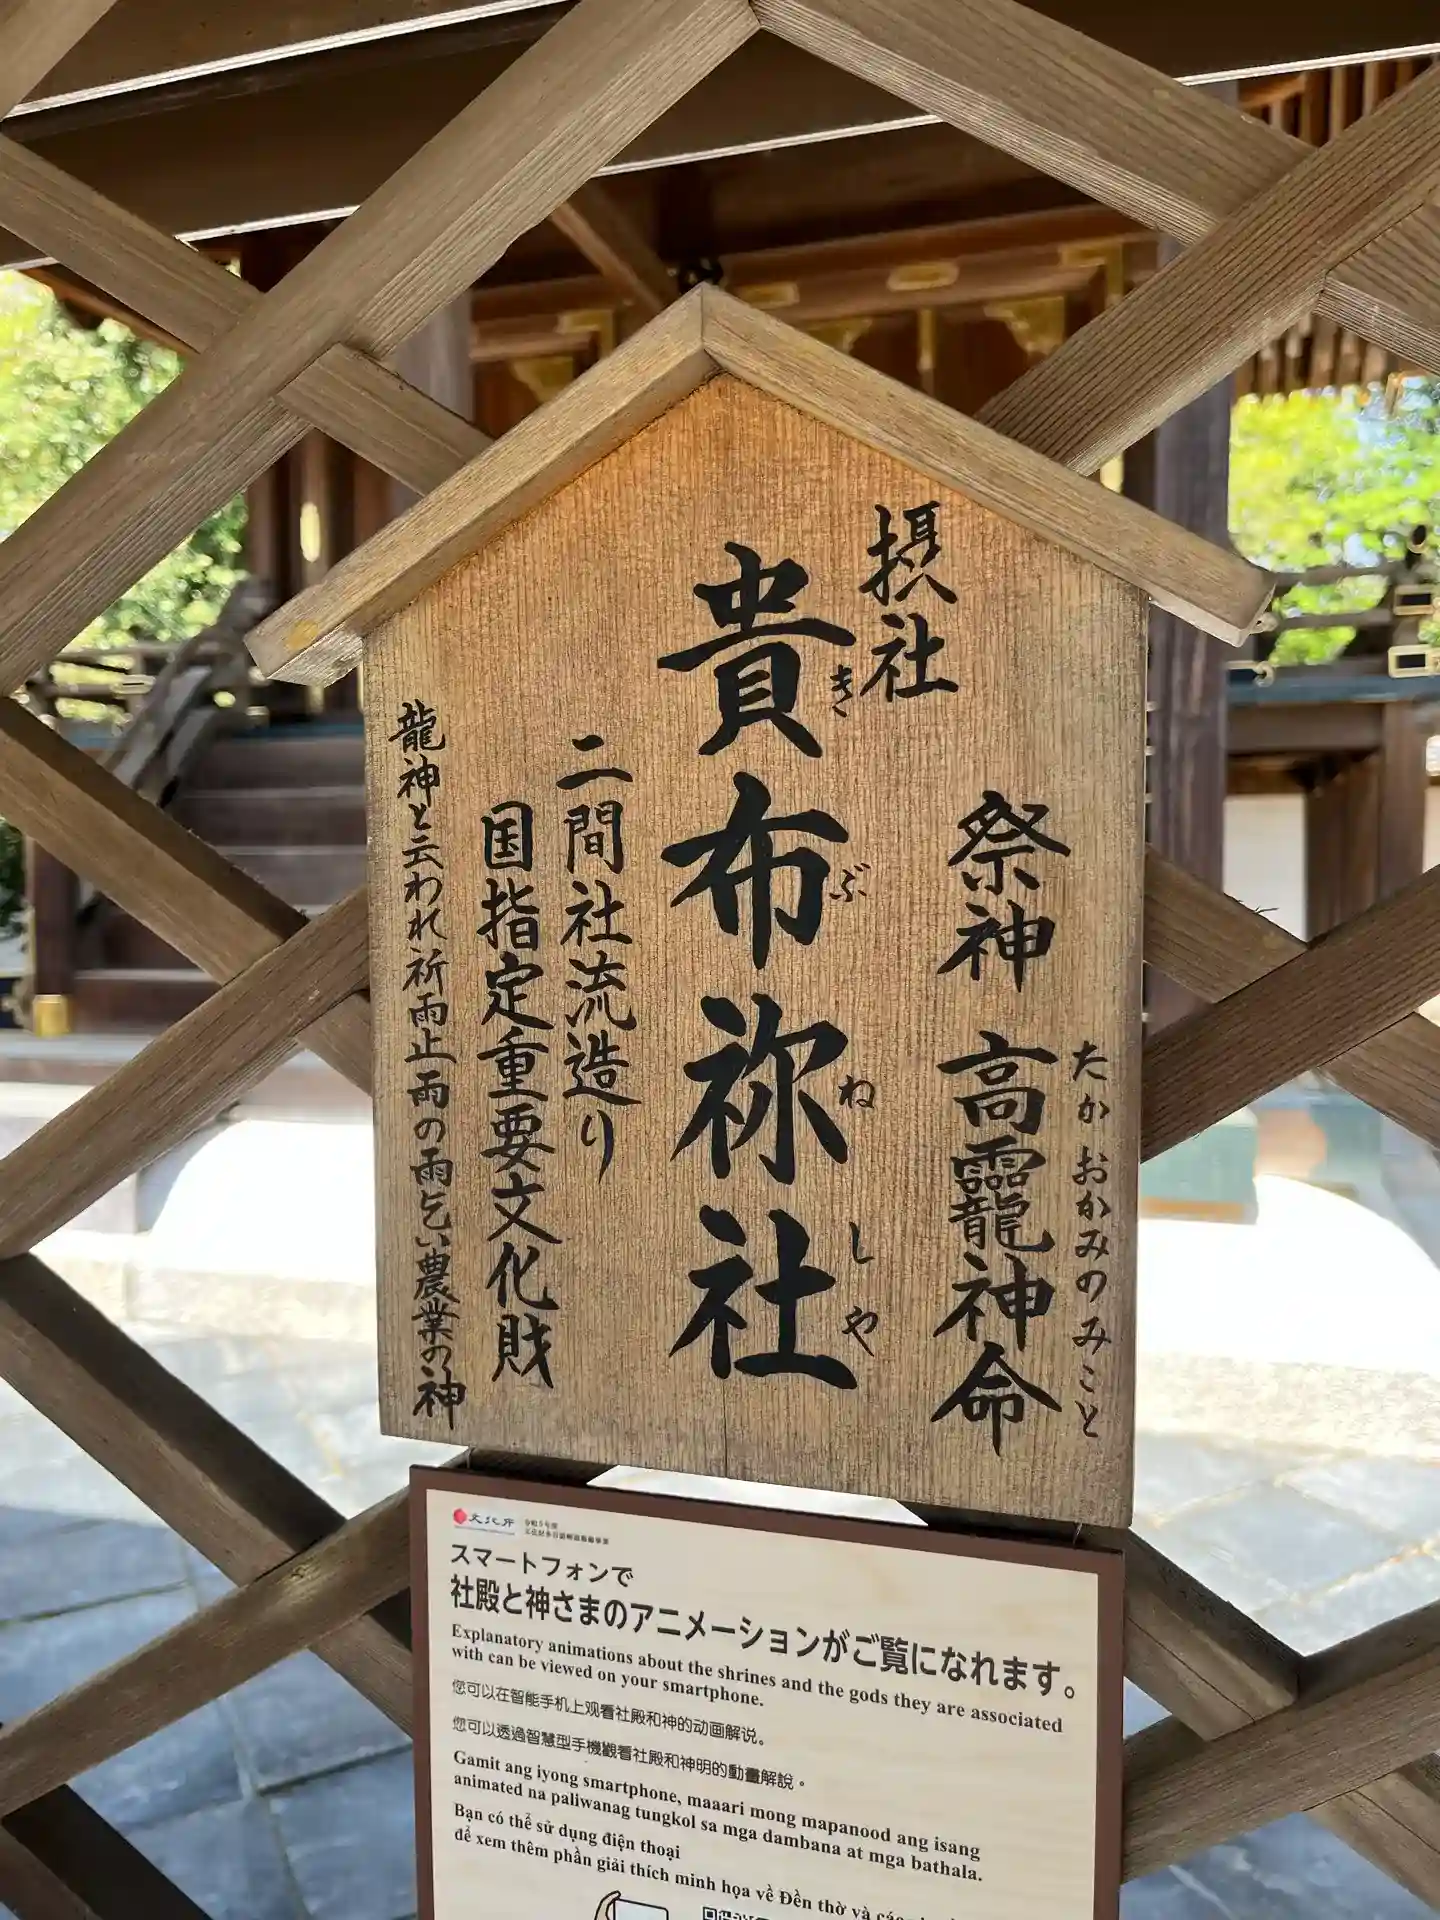 摂社
祭神 高龗神命
たかおかみのみこと
貴布祢社
きぶねしや
二間社流造り
国指定重要文化財
龍神と云われ祈雨止雨の雨乞い農業の神
文化庁
令和5年度
スマートフォンで
社殿と神さまのアニメーションがご覧になれます。
Explanatory animations about the shrines and the gods they are associated
with can be viewed on your smartphone.
您可以在智能手机上观看社殿和神的动画解说。
您可以透過智慧型手機觀看社殿和神明的動畫解說。
Gamit ang iyong smartphone, maaari mong mapanood ang isang
animated na paliwanag tungkol sa mga dambana at mga bathala.
Bạn có thể sử dụng điện thoại
để xem thêm phần giải thích minh họa về Đền thờ và